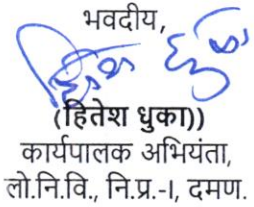 भवदीय,
(हितेश धुका))
कार्यपालक अभियंता,
लो.नि.वि., नि.प्र.-I, दमण.